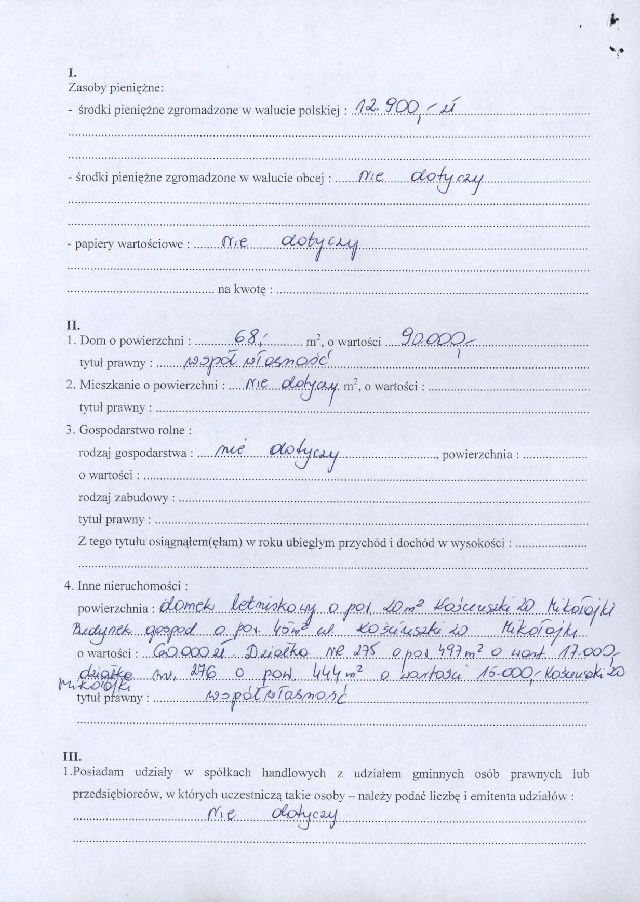 I.
Zasoby pieniężne:
- środki pieniężne zgromadzone w walucie polskiej : 12.900,- zł
- środki pieniężne zgromadzone w walucie obcej : nie dotyczy
- papiery wartościowe : nie dotyczy
na kwotę :
II.
1. Dom o powierzchni : 68,- m², o wartości 90.000,-
tytuł prawny : współwłasność
2. Mieszkanie o powierzchni : nie dotyczy m², o wartości :
tytuł prawny :
3. Gospodarstwo rolne :
rodzaj gospodarstwa : nie dotyczy, powierzchnia :
o wartości :
rodzaj zabudowy :
tytuł prawny :
Z tego tytułu osiągnąłem(ęłam) w roku ubiegłym przychód i dochód w wysokości :
4. Inne nieruchomości :
powierzchnia : domek letniskowy o pow. 20 m² Kościuszki 20 Mikołajki
Budynek gospod o pow 45 m² ul. Kościuszki 20 Mikołajki
o wartości : 60.000 zł Działka nr 275 o pow 497 m² o wart 17.000,-
działka nr. 276 o pow. 444 m² o wartości 15.000,- Kościuszki 20
Mikołajki
tytuł prawny : współwłasność
III.
1.Posiadam udziały w spółkach handlowych z udziałem gminnych osób prawnych lub
przedsiębiorców, w których uczestniczą takie osoby – należy podać liczbę i emitenta udziałów :
nie dotyczy